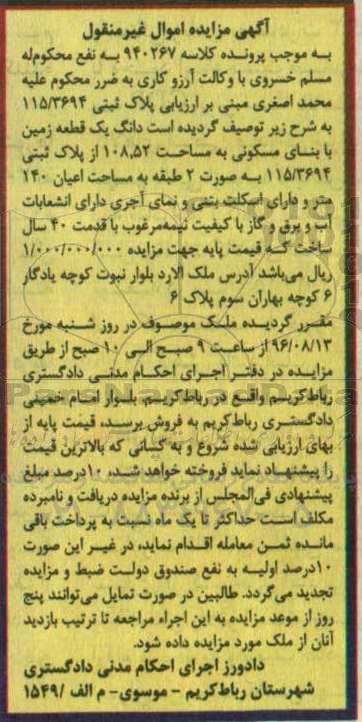 آگهی مزایده اموال غیرمنقول
به موجب پرونده کلاسه ۹۴۰۲۶۷ به نفع محکوم‌له
مسلم خسروی با وکالت آرزو کاری به ضرر محکوم علیه
محمد اصغری مبنی بر ارزیابی پلاک ثبتی ۱۱۵/۳۶۹۴
به شرح زیر توصیف گردیده است دانگ یک قطعه زمین
با بنای مسکونی به مساحت ۱۰۸٫۵۲ از پلاک ثبتی
۱۱۵/۳۶۹۴ به صورت ۲ طبقه به مساحت اعیان ۱۴۰
متر و دارای اسکلت بتنی و نمای آجری دارای انشعابات
آب و برق و گاز با کیفیت نیمه‌مرغوب با قدمت ۴۰ سال
ساخت که قیمت پایه جهت مزایده ۱/۰۰۰/۰۰۰/۰۰۰
ریال می‌باشد آدرس ملک الارد بلوار نبوت کوچه یادگار
۶ کوچه بهاران سوم پلاک ۶
مقرر گردیده ملک موصوف در روز شنبه مورخ
۹۶/۰۸/۱۳ از ساعت ۹ صبح الی ۱۰ صبح از طریق
مزایده در دفتر اجرای احکام مدنی دادگستری
رباط‌کریم واقع در رباط‌کریم، بلوار امام خمینی
دادگستری رباط‌کریم به فروش برسد، قیمت پایه از
بهای ارزیابی شده شروع و به کسانی که بالاترین قیمت
را پیشنهاد نماید فروخته خواهد شد، ۱۰درصد مبلغ
پیشنهادی فی‌المجلس از برنده مزایده دریافت و نامبرده
مکلف است حداکثر تا یک ماه نسبت به پرداخت باقی
مانده ثمن معامله اقدام نماید، در غیر این صورت
۱۰درصد اولیه به نفع صندوق دولت ضبط و مزایده
تجدید می‌گردد. طالبین در صورت تمایل می‌توانند پنج
روز از موعد مزایده به این اجراء مراجعه تا ترتیب بازدید
آنان از ملک مورد مزایده داده شود.
دادورز اجرای احکام مدنی دادگستری
شهرستان رباط‌کریم - موسوی- م الف /۱۵۴۹